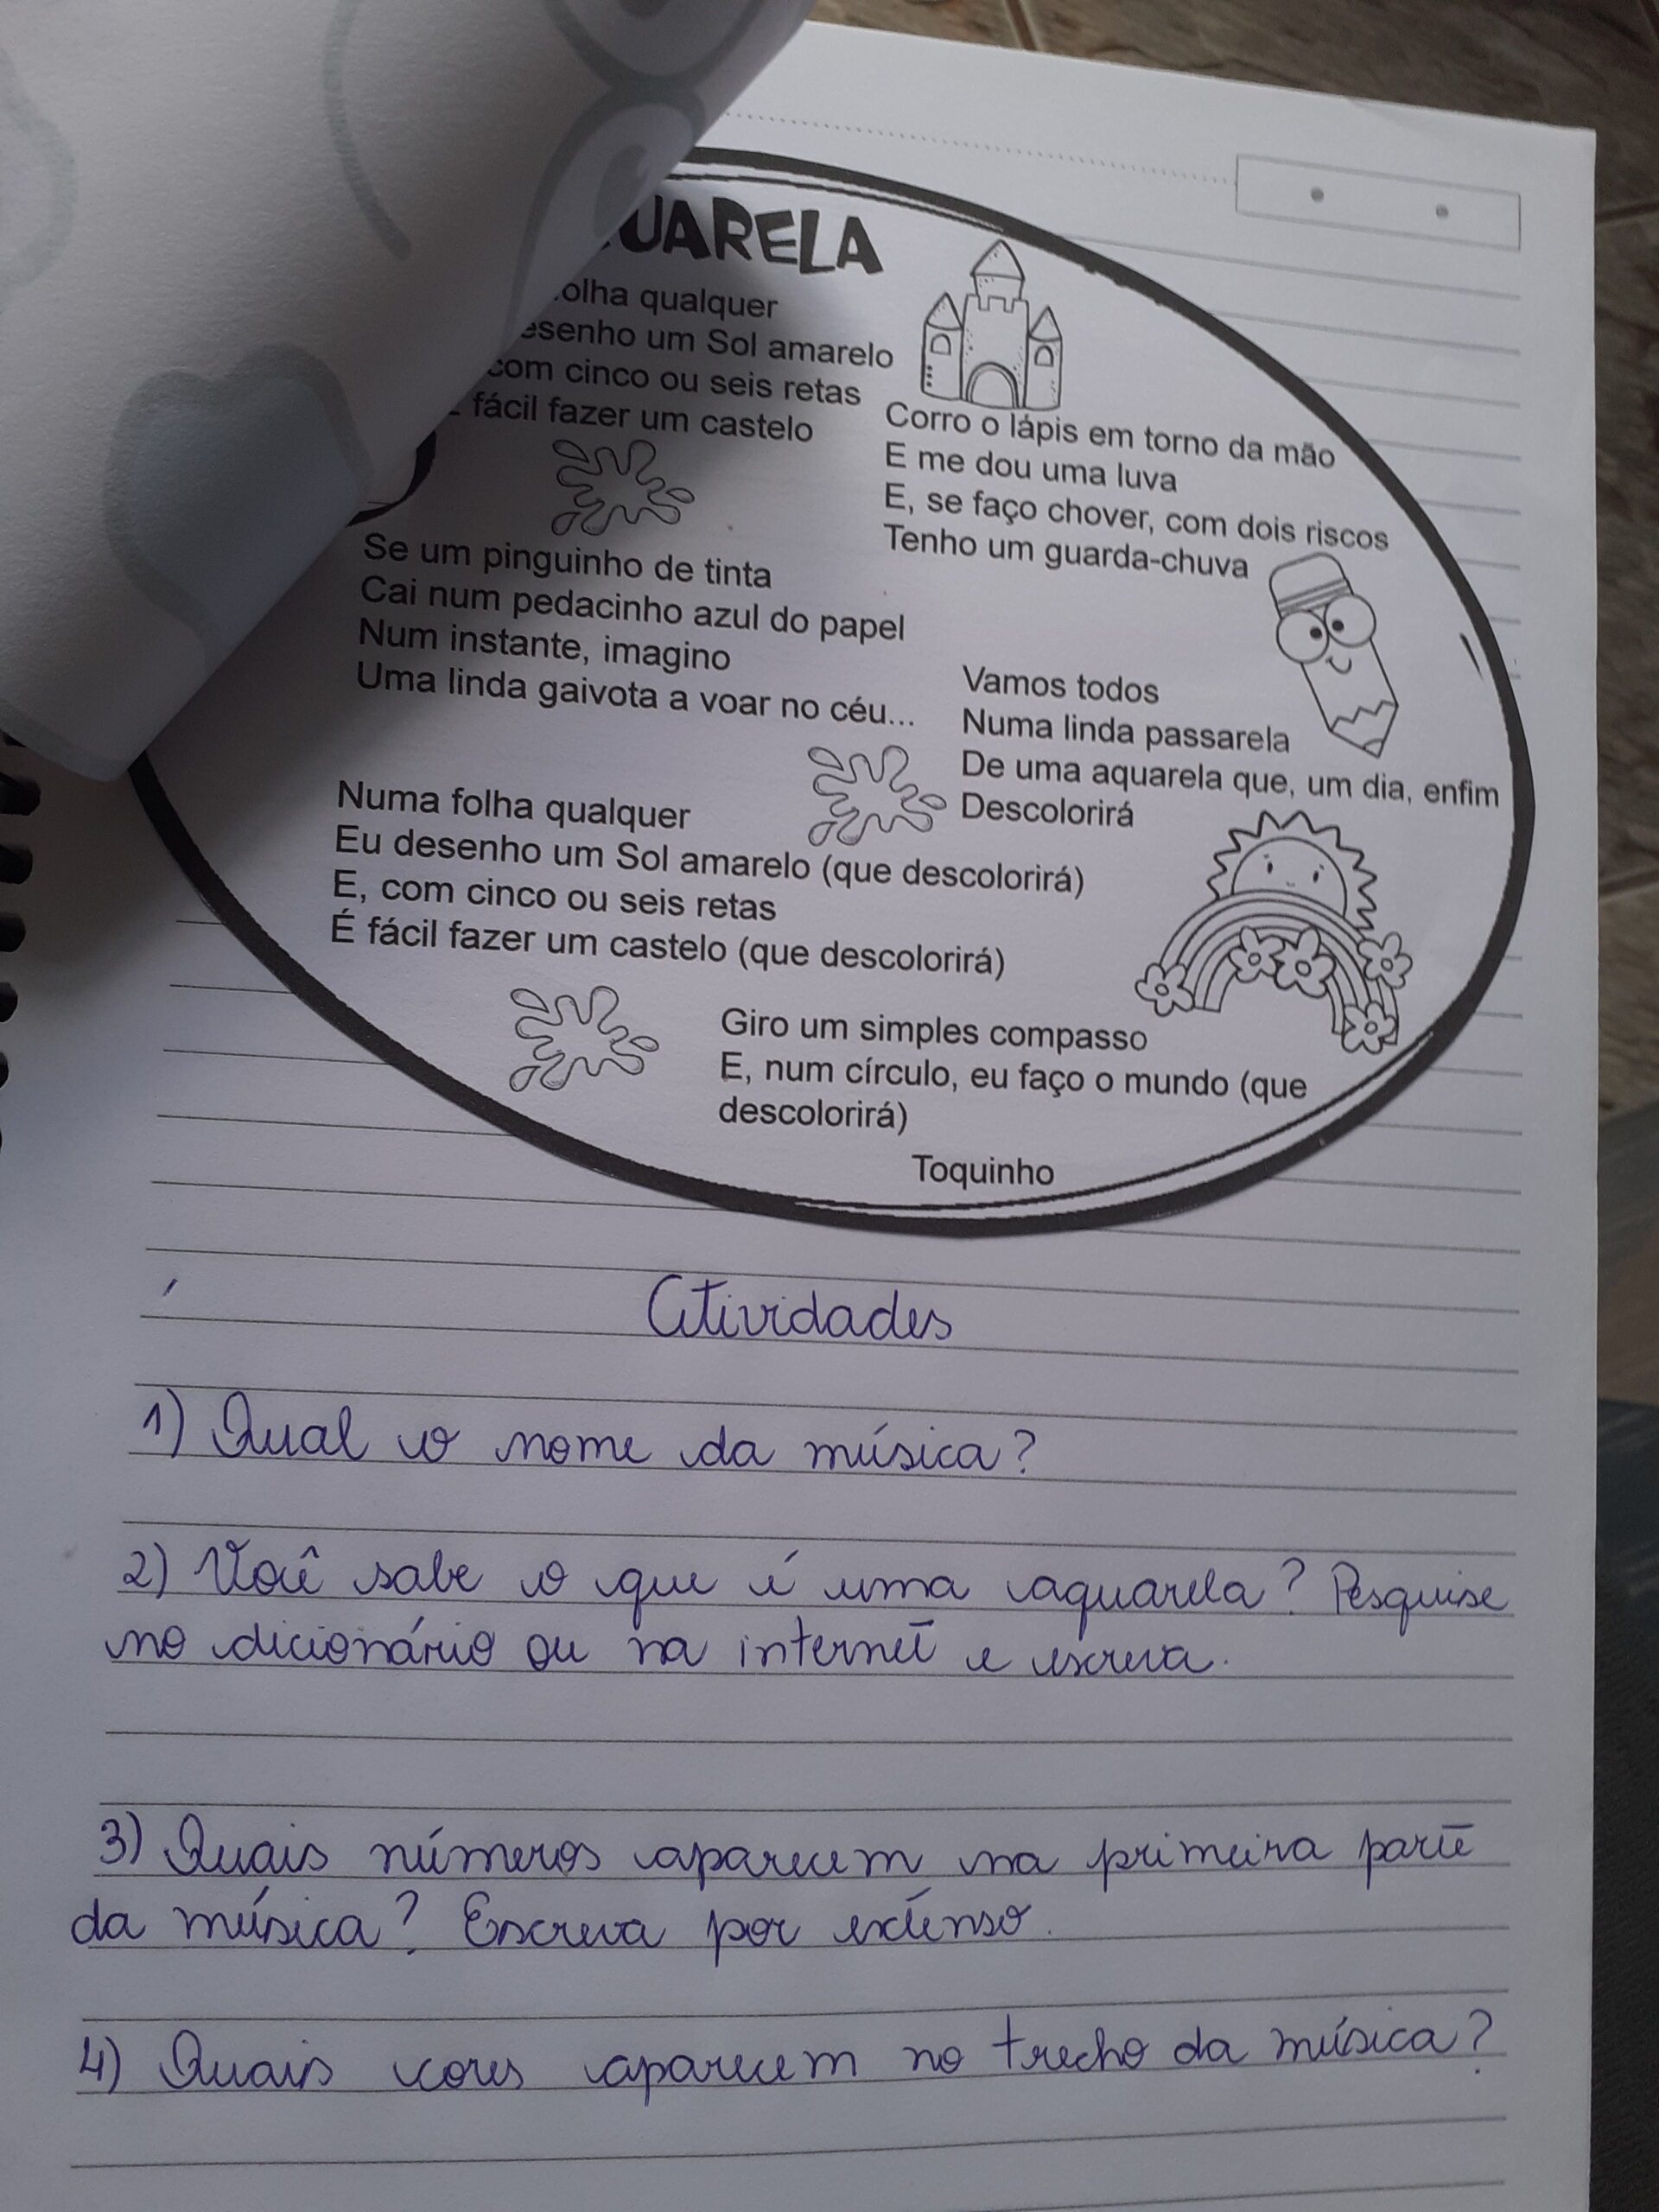 UARELA
olha qualquer
esenho um Sol amarelo
com cinco ou seis retas
fácil fazer um castelo
Corro o lápis em torno da mão
E me dou uma luva
E, se faço chover, com dois riscos
Tenho um guarda-chuva
Se um pinguinho de tinta
Cai num pedacinho azul do papel
Num instante, imagino
Uma linda gaivota a voar no céu...
Vamos todos
Numa linda passarela
De uma aquarela que, um dia, enfim
Descolorirá
Numa folha qualquer
Eu desenho um Sol amarelo (que descolorirá)
E, com cinco ou seis retas
É fácil fazer um castelo (que descolorirá)
Giro um simples compasso
E, num círculo, eu faço o mundo (que
descolorirá)
Toquinho
Atividades
1) Qual o nome da música?
2) Você sabe o que é uma aquarela? Pesquise
no dicionário ou na internet e escreva.
3) Quais números aparecem na primeira parte
da música? Escreva por extenso.
4) Quais cores aparecem no trecho da música?